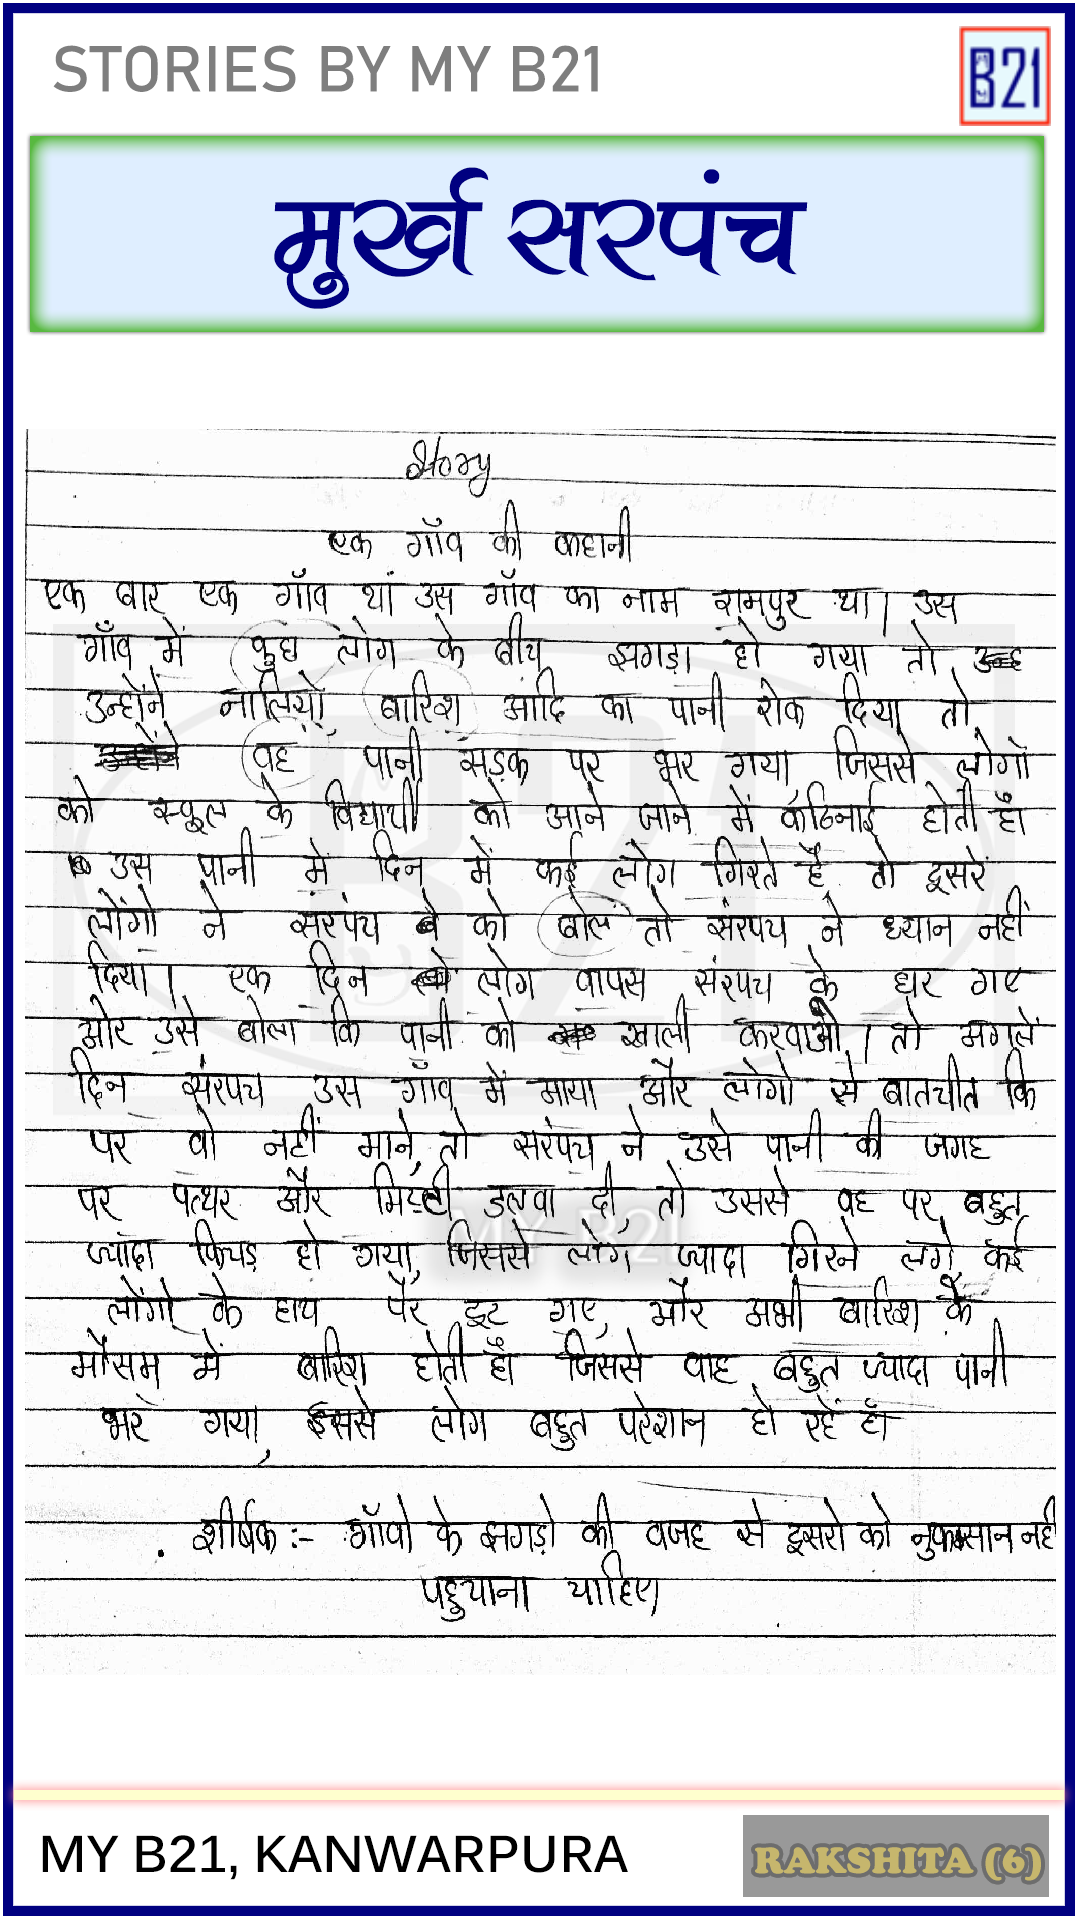 STORIES BY MY B21
B21
मुर्ख सरपंच
Story
एक गाँव की कहानी
एक बार एक गाँव थां उस गाँव का नाम रामपुर था। उस
गाँव में कुछ लोग के बीच झगड़ा हो गया तो
उन्होंनें नालियों बारिश आदि का पानी रोक दिया तो
वह पानी सड़क पर भर गया, जिससे लोगों
को स्कूल के विद्यार्थी को आने जाने में कठिनाई होती हैं।
उस पानी में दिन में कई लोग गिरते है तो दूसरें
लोंगो ने संरपंच को बोल तो संरपच ने ध्यान नहीं
दिया। एक दिन लोग वापस संरपच के घर गए
और उसे बोला कि पानी को खाली करवाओ। तो अगलें
दिन संरपच उस गाँव में आया और लोगो से बातचीत कि
पर वो नहीं माने, तो सरंपच ने उसे पानी की जगह
पर पत्थर और मिट्टी डलवा दी, तो उससे वह पर बहुत
ज्यादा किचड़ हो गया, जिससे लोग ज्यादा गिरने लगे, कई
लोंगो के हाथ पैर टुट गए, और अभी बारिश के
मौसम में बारिश होती हैं। जिससे वाह बहुत ज्यादा पानी
भर गया, इससे लोग बहुत परेशान हो रहें हैं।
शीर्षक :- गाँवो के झगड़ो की वजह से दूसरो को नुकसान नही
पहुचाना चाहिए।
MY B21
MY B21, KANWARPURA
RAKSHITA (6)